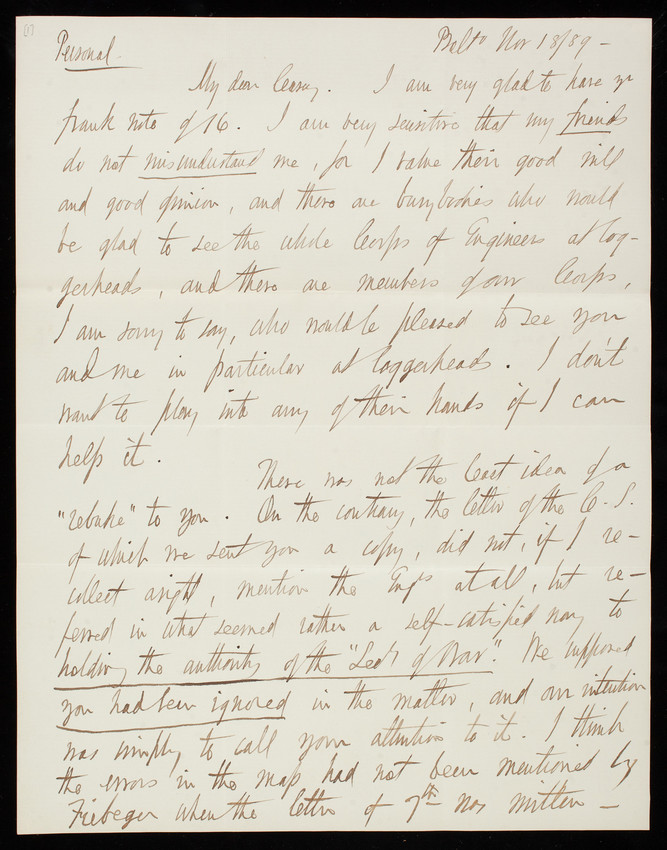 (1)
Personal - Balto Nov 18/89 -
My dear Casey. I am very glad to have yr
frank note of 16. I am very sensitive that my friends
do not misunderstand me, for I value their good will
and good opinion, and there are busybodies who would
be glad to see the whole Corps of Engineers at log-
gerheads, and there are members of our Corps,
I am sorry to say, who would be pleased to see you
and me in particular at loggerheads. I don't
want to play into any of their hands if I can
help it.
There was not the least idea of a
"rebuke" to you. On the contrary, the letter of the C. S.
of which we sent you a copy, did not, if I re-
collect aright, mention the Engrs at all, but re-
ferred in what seemed rather a self-satisfied way to
holding the authority of the "Secty of War". We supposed
you had been ignored in the matter, and our intention
was simply to call your attention to it. I think
the errors in the map had not been mentioned by
Fiebeger when the letter of 7th was written -